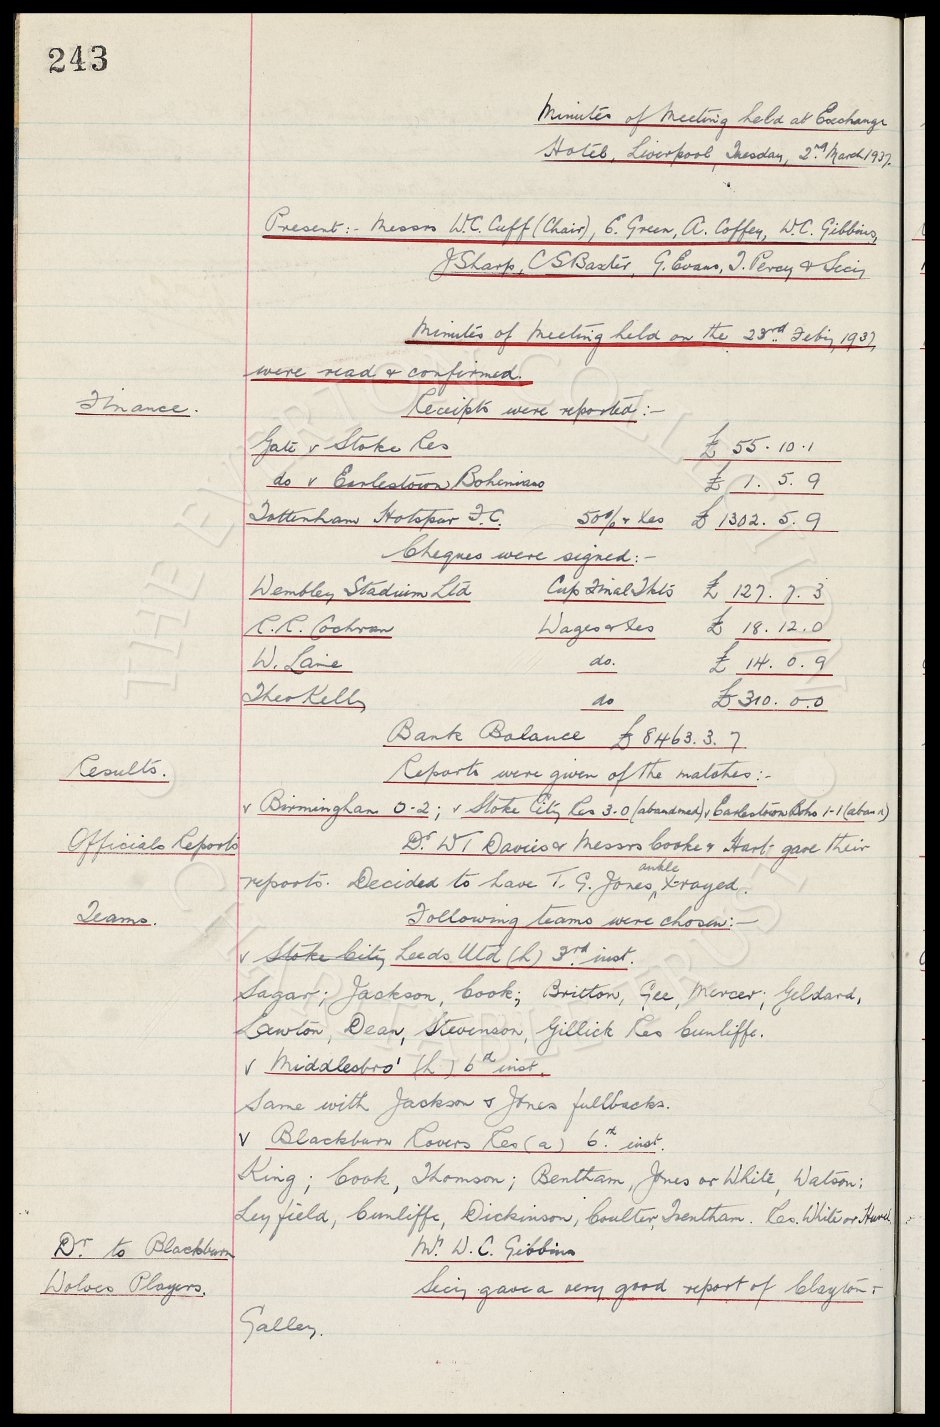 243
Minutes of Meeting held at Exchange
Hotel, Liverpool, Tuesday, 2nd March 1937.
Present:- Messrs W.C. Cuff (Chair), E. Green, A. Coffey, W.C. Gibbins,
J Sharp, C S Baxter, G. Evans, T. Percy & Secy
Minutes of Meeting held on the 23rd Feby, 1937,
were read & confirmed.
Finance. Receipts were reported:-
Gate v Stoke Res £ 55. 10. 1
do v Earlestown Bohemians £ 1. 5. 9
Tottenham Hotspur F.C. 50% & Xes £ 1302. 5. 9
Cheques were signed:-
Wembley Stadium Ltd Cup Final Tkts £ 127. 7. 3
R.R. Cochran Wages & Xes £ 18. 12. 0
W. Laine do. £ 14. 0. 9
Theo Kelly do £ 310. 0. 0
Bank Balance £ 8463. 3. 7
Results. Reports were given of the matches:-
v Birmingham 0-2; v Stoke City Res 3-0 (abandoned) v Earlestown Bohs 1-1 (aban'd)
Officials Reports Dr. W T Davies & Messrs Cooke & Hart gave their
reports. Decided to have T. G. Jones, ankle X-rayed.
Teams. Following teams were chosen:-
v Stoke City Leeds Utd (h) 3rd inst.
Sagar; Jackson, Cook; Britton, Gee, Mercer; Geldard,
Lawton, Dean, Stevenson, Gillick Res Cunliffe.
v Middlesbro' (h) 6th inst.
Same with Jackson & Jones fullbacks.
v Blackburn Rovers Res (a) 6th inst.
King; Cook, Thomson; Bentham, Jones or White, Watson;
Leyfield, Cunliffe, Dickinson, Coulter, Trentham. Res. White or Hurel.
Dr. to Blackburn Mr. W. C. Gibbins
Wolves Players. Secy gave a very good report of Clayton &
Galley.
THE EVERTON COLLECTION
CHARITABLE TRUST